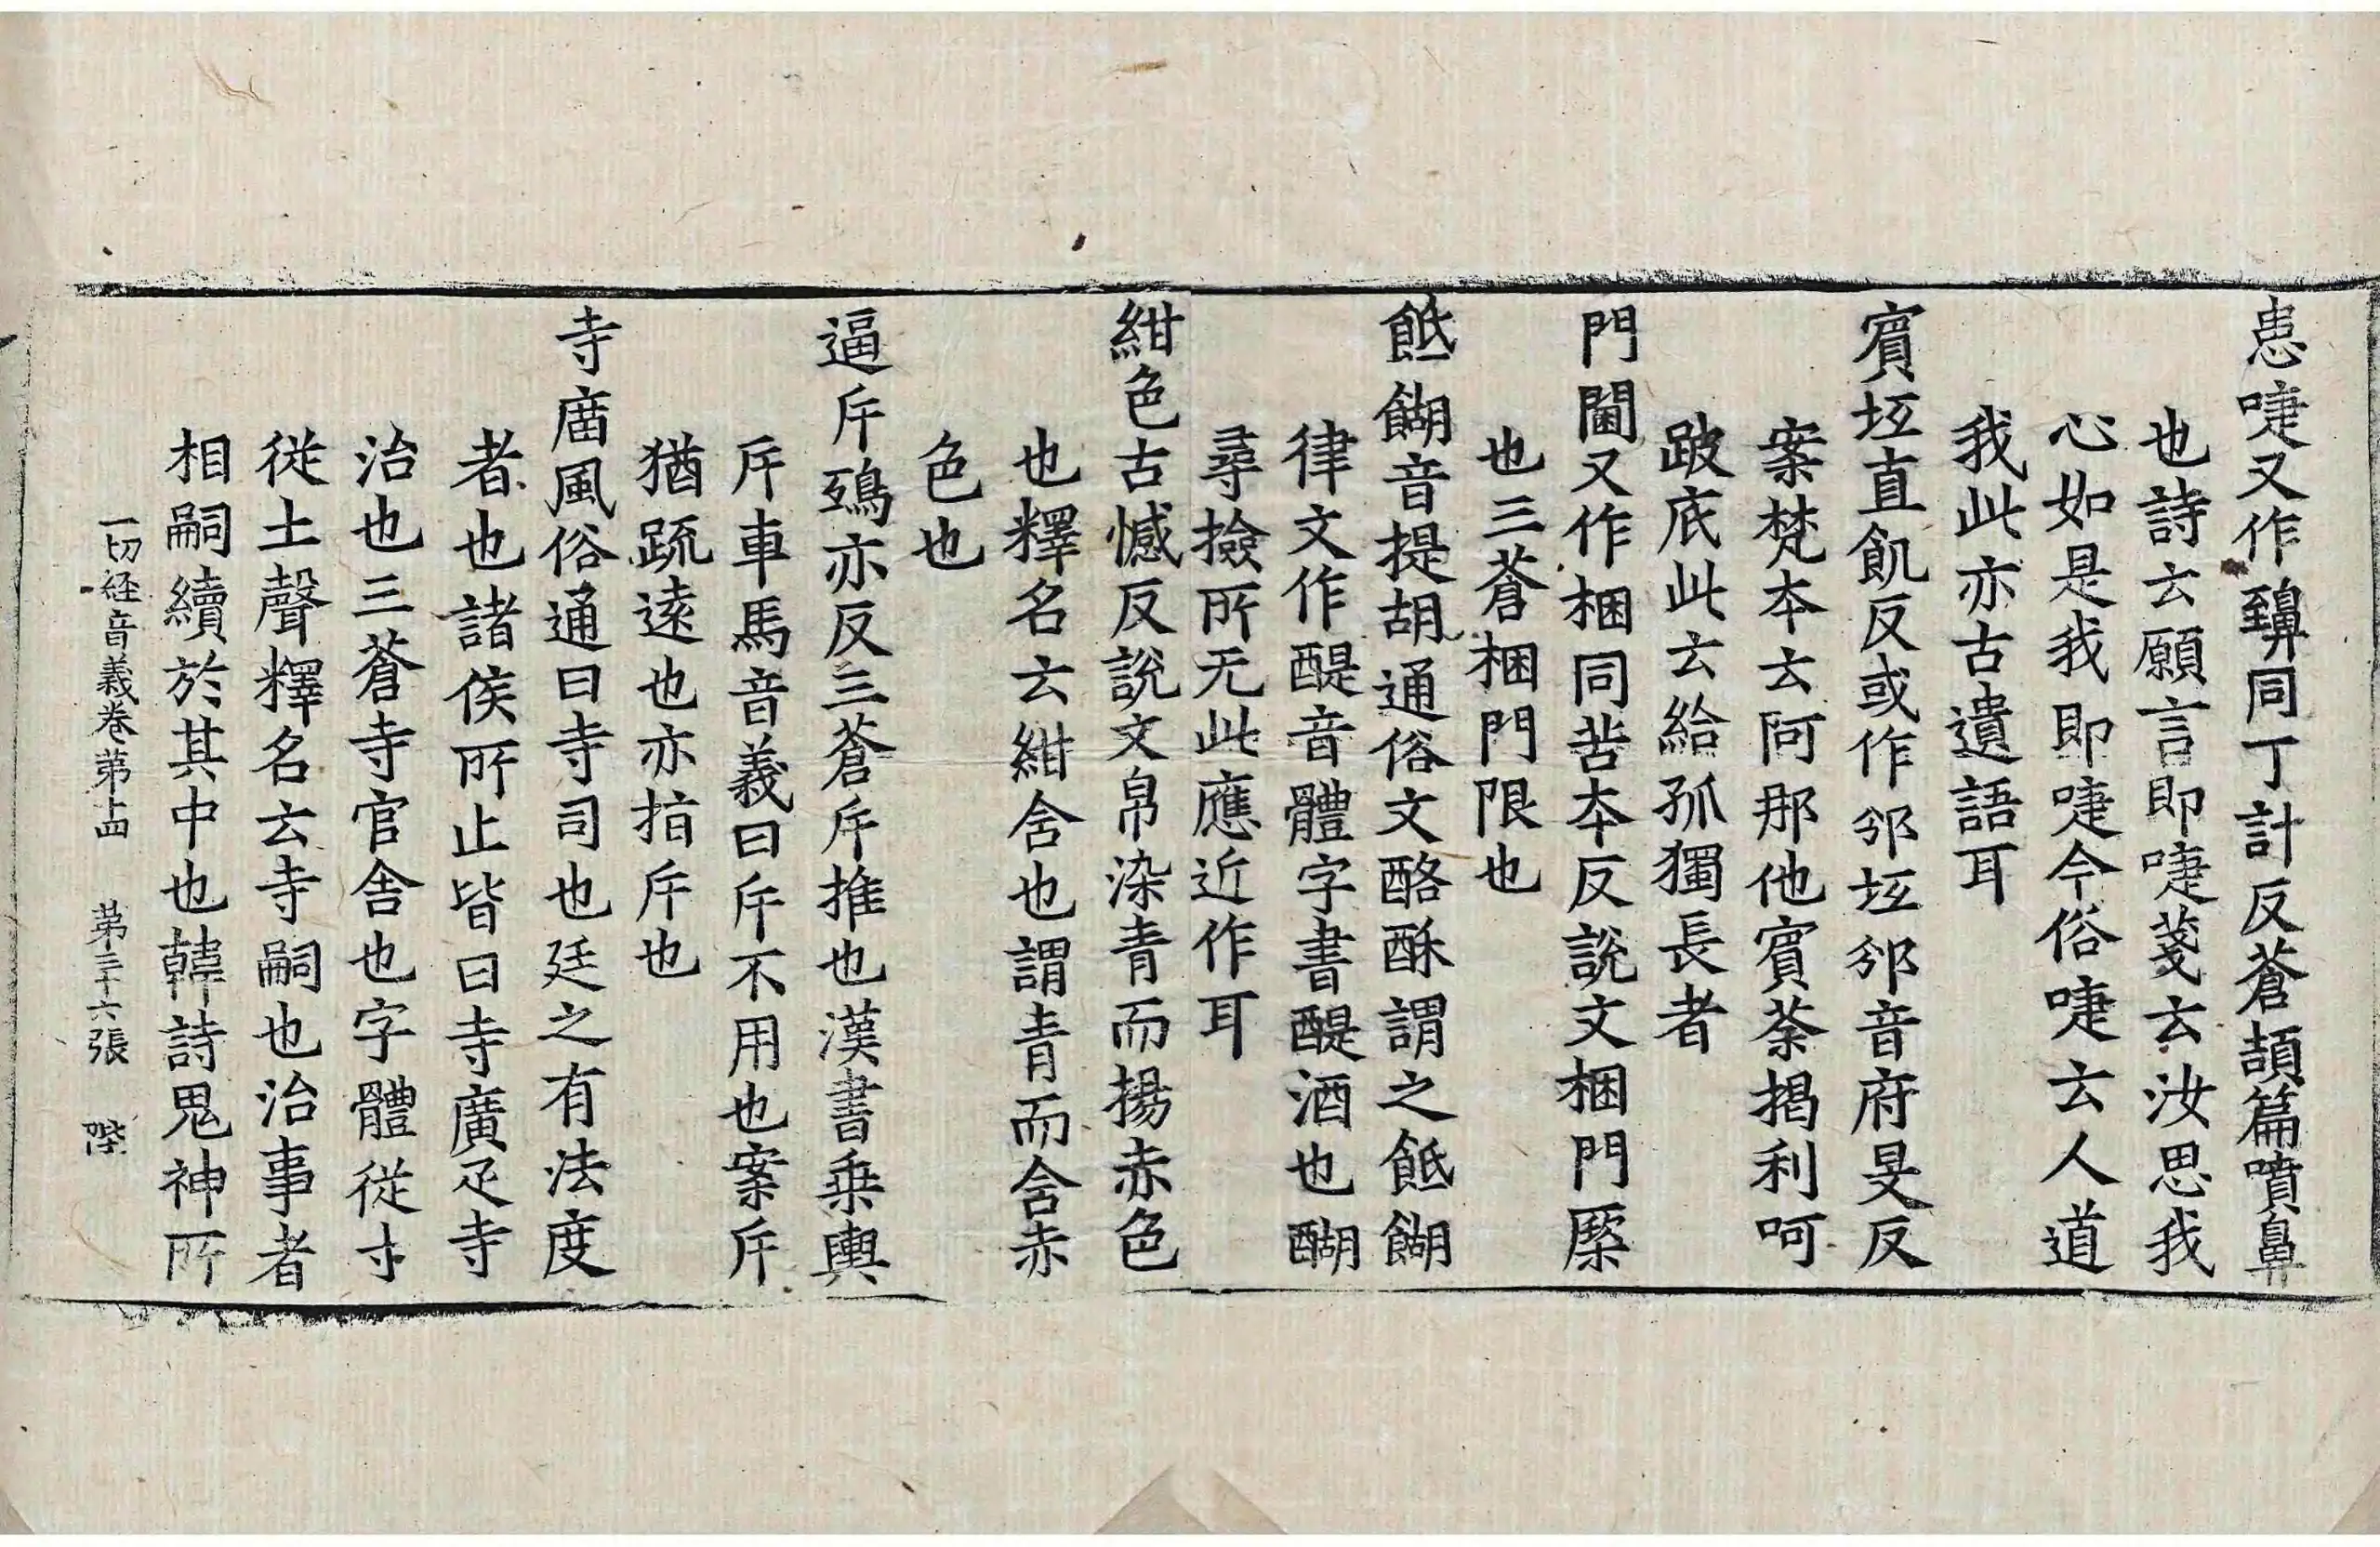 恚啑又作𪖙同丁計反蒼頡篇噴鼻
也詩云願言即啑箋云汝思我
心如是我即啑今俗啑云人道
我此亦古遺語耳
賓坻直飢反或作邠坻邠音府旻反
案梵本云阿那他賓荼揭利呵
跛底此云給孤獨長者
門閫又作梱同苦本反說文梱門橜
也三蒼梱門限也
䬫餬音提胡通俗文酪酥謂之䬫餬
律文作醍音體字書醍酒也醐
尋撿所无此應近作耳
紺色古憾反說文帛染青而揚赤色
也釋名云紺含也謂青而含赤
色也
逼斥鴟亦反三蒼斥推也漢書乗輿
斥車馬音義曰斥不用也案斥
猶䟽遠也亦指斥也
寺廟風俗通曰寺司也廷之有法度
者也諸侯所止皆曰寺廣疋寺
治也三蒼寺官舍也字體從寸
從土聲釋名云寺嗣也治事者
相嗣續於其中也韓詩鬼神所
一切經音義卷第十四 第三十六張 陛